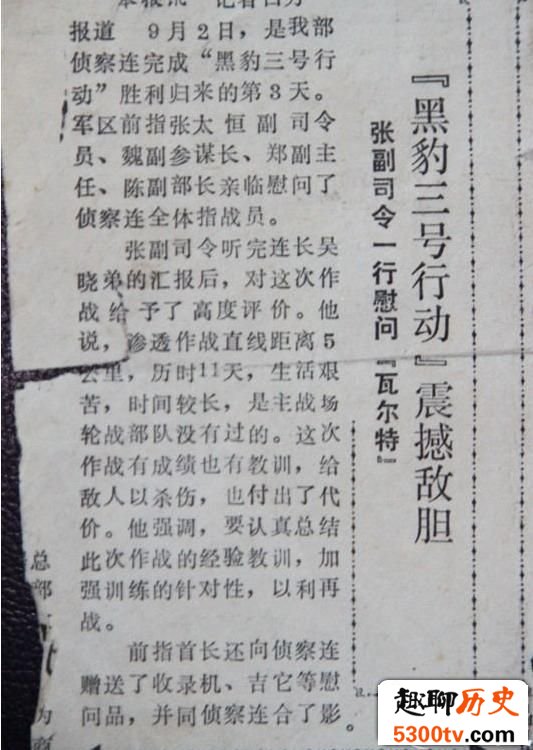 『黑豹三号行动』震撼敌胆
张副司令一行慰问『瓦尔特』
本报讯 记者
报道 9月2日，是我部
侦察连完成“黑豹三号行
动”胜利归来的第3天。
军区前指张太恒副司令
员、魏副参谋长、郑副主
任、陈副部长亲临慰问了
侦察连全体指战员。
张副司令听完连长吴
晓弟的汇报后，对这次作
战给予了高度评价。他
说，渗透作战直线距离5
公里，历时11天，生活艰
苦，时间较长，是主战场
轮战部队没有过的。这次
作战有成绩也有教训，给
敌人以杀伤，也付出了代
价。他强调，要认真总结
此次作战的经验教训，加
强训练的针对性，以利再
战。
前指首长还向侦察连
赠送了收录机、吉它等慰
问品，并同侦察连合了影。
总
部
为
趣聊历史
5300tv.com